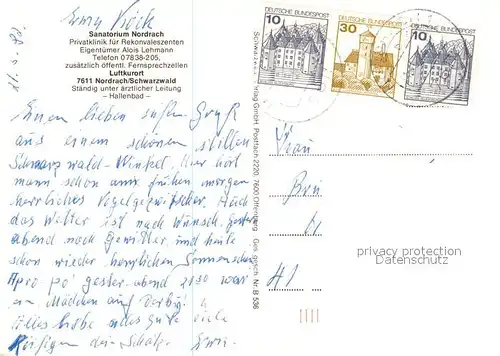 Sanatorium Nordrach
Privatklinik für Rekonvaleszenten
Eigentümer Alois Lehmann
Telefon 07838-205,
zusätzlich öffentl. Fernsprechzellen
Luftkurort
7611 Nordrach/Schwarzwald
Ständig unter ärztlicher Leitung
– Hallenbad –
Einen lieben süßen Gruß
aus einem schönen stillen
Schwarzwald-Winkel. Hier hört
mann schon am frühen morgen
herrliches Vogelgezwitscher. Auch
das Wetter ist nach Wunsch, gestern
abend noch Gewitter, und heute
schon wieder herrlichen Sonnenschein
Apropo gester abend 21.30 war
ein Mädchen auf
Alles liebe und gute viele
Küßchen dein Schatz
DEUTSCHE BUNDESPOST
10
DEUTSCHE BUNDESPOST
30
DEUTSCHE BUNDESPOST
10
GmbH, Postfach 2220, 7600 Offenburg
Ges. gesch. Nr. B 538
Frau
41
privacy protection
Datenschutz